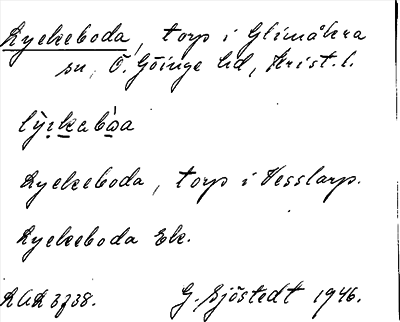 Lyckeboda, torp i Glimåkra
sn, Ö. Göinge hd, Krist. l.
Lyckeboda, torp i Vesslarp.
Lyckeboda Ek.
G. Sjöstedt 1946.